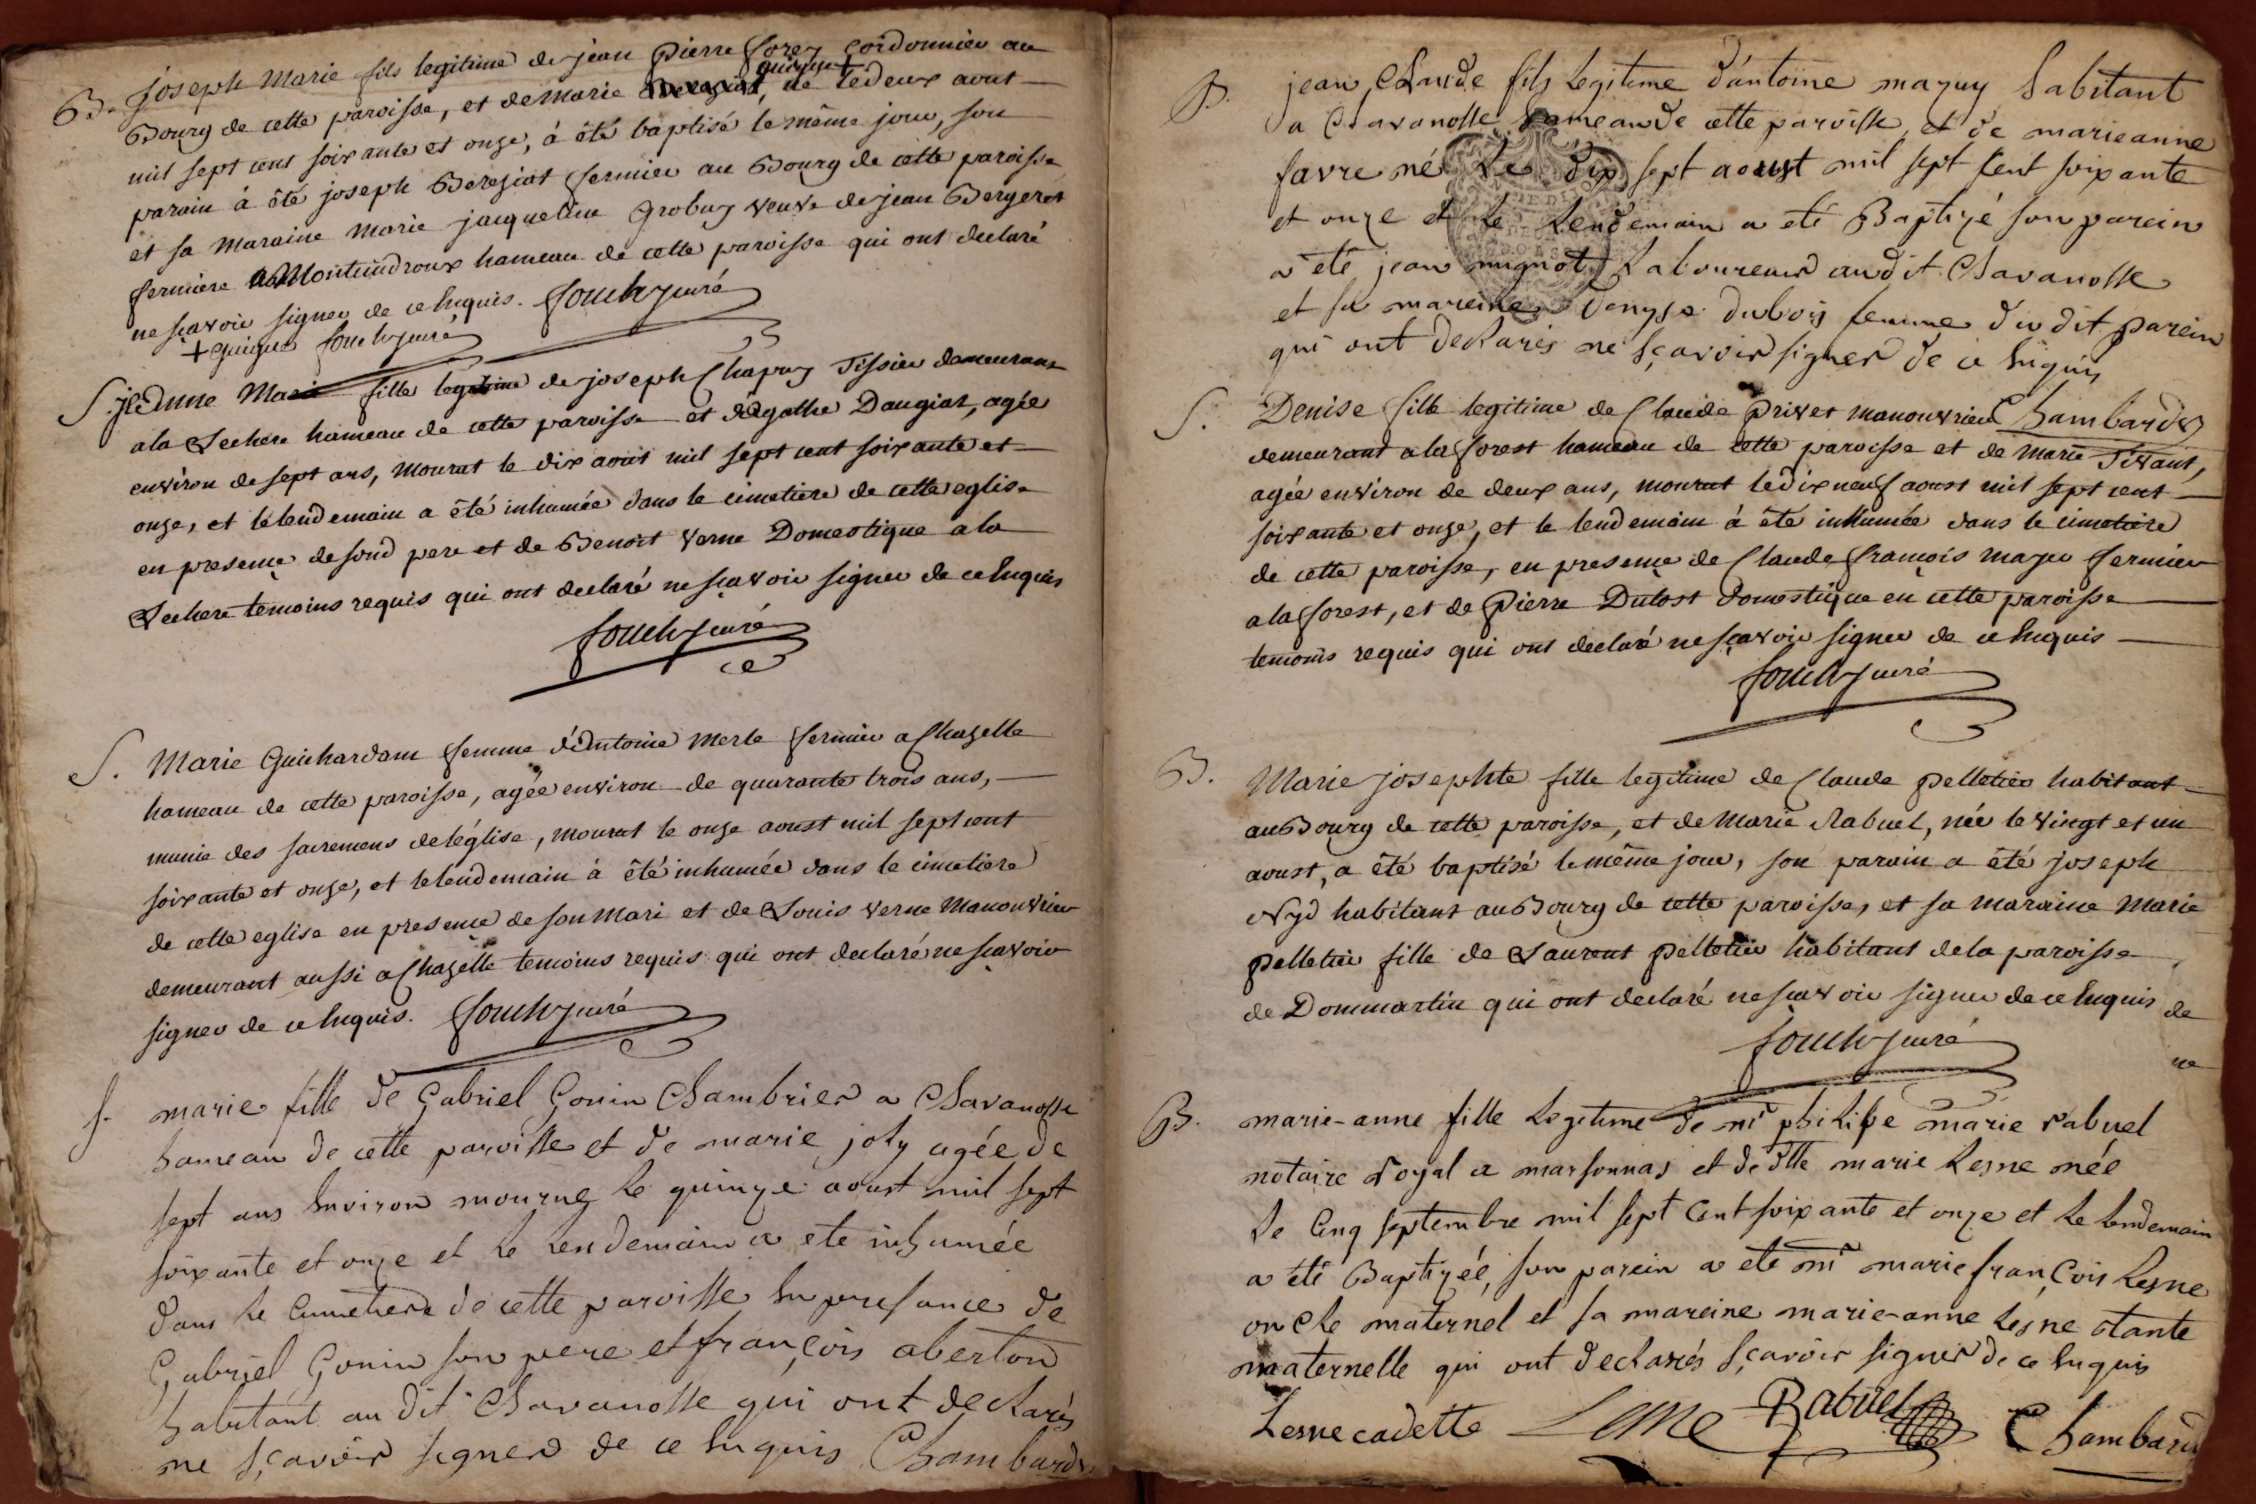 B. joseph Marie fils legitime de jean pierre forey cordonnier au
guigue +
Bourg de cette paroisse, et de Marie né le deux aout
mil sept cent soixante et onze, à êté baptisé le même jour, son
parain à êté joseph Bereziat fermier au Bourg de cette paroisse
et sa maraine marie jacqueline Grobuy veuve de jean Bergeret
fermiere a Montindroux hameau de cette paroisse qui ont declaré
ne sçavoir signer de ce enquis. fouchy curé
+ guigue fouchy curé
S. jeanne Marie fille legitime de joseph Chapuy Tissier demeurant
a la Lechere hameau de cette paroisse et d'agathe Daugiat, agée
environ de sept ans, mourut le dix aout mil sept cent soixante et
onze, et le lendemain a êté inhumée dans le cimetiere de cette eglise
en presence de sond pere et de Benoit verne Domestique a la
Lechere temoins requis qui ont declaré ne sçavoir signer de ce enquis
fouchy curé
S. Marie Guichardam femme d'Antoine Merle fermier a Chazelle
hameau de cette paroisse, agée environ de quarante trois ans,
munie des sacremens de l'église, mourut le onze aoust mil sept cent
soixante et onze, et le lendemain à êté inhumée dans le cimetiere
de cette eglise en presence de son mari et de Louis verne Manouvrier
demeurant aussi a Chazelle temoins requis qui ont declaré ne sçavoir
signer de ce enquis. fouchy curé
S. marie fille de Gabriel Gonin Chambrier a Chavanosse
hameau de cette paroisse et de marie joly agée de
sept ans environ mourug le quinze aoust mil sept
soixante et onze et le lendemain a eté inhumée
dans le cimetiere de cette paroisse en presance de
Gabriel Gonin son pere et françois aberton
habitant au dit Chavanosse qui ont declarés
ne sçavoir signer de ce enquis Chambard
B. jean Claude fils legitime d'antoine mazuy habitant
a Chavanosse hameau de cette paroisse et de marie anne
favre né le dix sept aoust mil sept cent soixante
et onze et le lendemain a eté Baptizé son parein
a eté jean mignot laboureur au dit Chavanosse
et sa mareine denyse dubois femme du dit parein
qui ont declarés ne sçavoir signer de ce enquis
Chambard
S. Denise fille legitime de Claude privet manouvrier
demeurant a la forest hameau de cette paroisse et de marie Tivant,
agée environ de deux ans, mourut le dix neuf aoust mil sept cent
soixante et onze, et le lendemain à êté inhumée dans le cimetiere
de cette paroisse, en presence de Claude françois mazuy fermier
a la forest, et de pierre Dutost domestique en cette paroisse
temoins requis qui ont declaré ne sçavoir signer de ce enquis
fouchy curé
B. Marie josephte fille legitime de Claude pelletier habitant
au Bourg de cette paroisse, et de Marie Rabuel, née le vingt et un
aoust, a êté baptisé le même jour, son parain a êté joseph
Nyd habitant au Bourg de cette paroisse, et sa maraine Marie
pelletier fille de Laurent pelletier habitant de la paroisse
de Dommartin qui ont declaré ne sçavoir signer de ce enquis de
fouchy curé
ne
B. marie-anne fille legitime de mr philipe marie rabuel
notaire royal a marsonnas et de dlle marie Lesne née
le cinq septembre mil sept cent soixante et onze et le lendemain
a êté Baptizée, son parein a eté mr marie françois Lesne
oncle maternel et sa mareine marie-anne Lesne tante
maternelle qui ont declarés sçavoir signer de ce enquis
Lesne cadette Lesne Rabuel Chambard